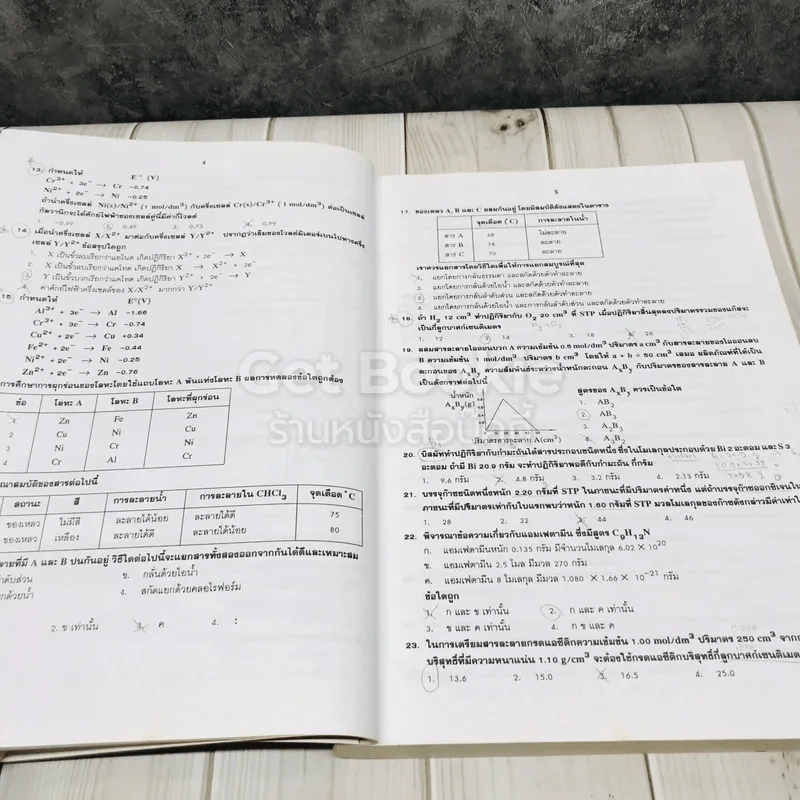 4
13. กำหนดให้ E° (V)
Cr3+ + 3e- → Cr -0.74
Ni2+ + 2e- → Ni -0.25
ถ้านำครึ่งเซลล์ Ni(s)/Ni2+ (1 mol/dm3) กับครึ่งเซลล์ Cr(s)/Cr3+ (1 mol/dm3) ต่อเป็นเซลล์
กัลวานิกจะได้ศักย์ไฟฟ้าของเซลล์คู่นี้มีค่ากี่โวลต์
1. -0.99 2. 0.49 3. 0.73 4. 0.99
14. เมื่อนำครึ่งเซลล์ X/X2+ มาต่อกับครึ่งเซลล์ Y/Y2+ ปรากฏว่าเข็มของโวลต์มิเตอร์เบนไปทางครึ่ง
เซลล์ Y/Y2+ ข้อสรุปใดถูก
1. X เป็นขั้วลบเรียกว่าแอโนด เกิดปฏิกิริยา X2+ + 2e- → X
2. X เป็นขั้วลบเรียกว่าแคโทด เกิดปฏิกิริยา X → X2+ + 2e-
3. Y เป็นขั้วบวกเรียกว่าแคโทด เกิดปฏิกิริยา Y2+ + 2e- → Y
4. ค่าศักย์ไฟฟ้าครึ่งเซลล์ของ X/X2+ มากกว่า Y/Y2+
15. กำหนดให้ E°(V)
Al3+ + 3e- → Al -1.66
Cr3+ + 3e- → Cr -0.74
Cu2+ + 2e- → Cu +0.34
Fe2+ + 2e- → Fe -0.44
Ni2+ + 2e- → Ni -0.25
Zn2+ + 2e- → Zn -0.76
การศึกษาการผุกร่อนของโลหะโดยใช้แถบโลหะ A พันแท่งโลหะ B ผลการทดลองข้อใดถูกต้อง
ข้อ โลหะ A โลหะ B โลหะที่ผุกร่อน
1 Zn Fe Zn
2 Cu Ni Cu
3 Ni Cr Ni
4 Cr Al Cr
ณาสมบัติของสารต่อไปนี้
สถานะ สี การละลายน้ำ การละลายใน CHCl3 จุดเดือด °C
ของเหลว ไม่มีสี ละลายได้น้อย ละลายได้ดี 75
ของเหลว เหลือง ละลายได้น้อย ละลายได้ดี 80
ลายที่มี A และ B ปนกันอยู่ วิธีใดต่อไปนี้จะแยกสารทั้งสองออกจากกันได้ดีและเหมาะสม
ำดับส่วน ข. กลั่นด้วยไอน้ำ
กด้วยน้ำ ง. สกัดแยกด้วยคลอโรฟอร์ม
2. ข เท่านั้น 3. ค 4.
5
17. ของเหลว A, B และ C ผสมกันอยู่ โดยมีสมบัติดังแสดงในตาราง
จุดเดือด (°C) การละลายในน้ำ
สาร A 68 ไม่ละลาย
สาร B 78 ละลาย
สาร C 70 ละลาย
เราควรแยกสารโดยวิธีใดเพื่อให้การแยกสมบูรณ์ที่สุด
1. แยกโดยการกลั่นธรรมดา และสกัดด้วยตัวทำละลาย
2. แยกโดยการกลั่นด้วยไอน้ำ และสกัดด้วยตัวทำละลาย
3. แยกโดยการกลั่นลำดับส่วน และสกัดด้วยตัวทำละลาย
4. แยกโดยการกลั่นด้วยไอน้ำ และการกลั่นลำดับส่วน และสกัดด้วยตัวทำละลาย
18. ถ้า H2 12 cm3 ทำปฏิกิริยากับ O2 20 cm3 ที่ STP เมื่อปฏิกิริยาสิ้นสุดลงปริมาตรรวมของแก๊สจะ
เป็นกี่ลูกบาศก์เซนติเมตร
1. 12 2. 14 3. 18 4. 26
19. ผสมสารละลายไอออนบวก A ความเข้มข้น 0.5 mol/dm3 ปริมาตร a cm3 กับสารละลายของไอออนลบ
B ความเข้มข้น 1 mol/dm3 ปริมาตร b cm3 โดยให้ a + b = 50 cm3 เสมอ ผลิตภัณฑ์ที่ได้เป็น
ตะกอนของ AxBy ความสัมพันธ์ระหว่างน้ำหนักตะกอน AxBy กับปริมาตรของสารละลาย A และ B
เป็นดังกราฟต่อไปนี้
น้ำหนัก สูตรของ AxBy ควรเป็นข้อใด
AxBy(g) 1. AB2
2. AB3
3. A2B3
ปริมาตรสารละลาย A(cm3) 4. A3B2
20. บิสมัททำปฏิกิริยากับกำมะถันได้สารประกอบชนิดหนึ่ง ซึ่งในโมเลกุลประกอบด้วย Bi 2 อะตอม และ S 3
อะตอม ถ้ามี Bi 20.9 กรัม จะทำปฏิกิริยาพอดีกับกำมะถัน กี่กรัม
1. 9.6 กรัม 2. 4.8 กรัม 3. 3.2 กรัม 4. 2.13 กรัม
21. บรรจุก๊าซชนิดหนึ่งหนัก 2.20 กรัมที่ STP ในภาชนะที่มีปริมาตรค่าหนึ่ง แต่ถ้าบรรจุก๊าซออกซิเจนใน
ภาชนะที่มีปริมาตรเท่ากับใบแรกพบว่าหนัก 1.60 กรัมที่ STP มวลโมเลกุลของก๊าซดังกล่าวมีค่าเท่าใ
1. 28 2. 32 3. 44 4. 46
22. พิจารณาข้อความเกี่ยวกับแอมเฟตามีน ซึ่งมีสูตร C9H13N
ก. แอมเฟตามีนหนัก 0.135 กรัม มีจำนวนโมเลกุล 6.02 × 10^20
ข. แอมเฟตามีน 2.5 โมล มีมวล 270 กรัม
ค. แอมเฟตามีน 8 โมเลกุล มีมวล 1.080 × 1.66 × 10^-21 กรัม
ข้อใดถูก
1. ก และ ข เท่านั้น 2. ก และ ค เท่านั้น
3. ข และ ค เท่านั้น 4. ก ข และ ค
23. ในการเตรียมสารละลายกรดแอซีติกความเข้มข้น 1.00 mol/dm3 ปริมาตร 250 cm3 จาก
บริสุทธิ์ที่มีความหนาแน่น 1.10 g/cm3 จะต้องใช้กรดแอซีติกบริสุทธิ์กี่ลูกบาศก์เซนติเมต
1. 13.6 2. 15.0 3. 16.5 4. 25.0
Get Bookie
ร้านหนังสือน่าดี้